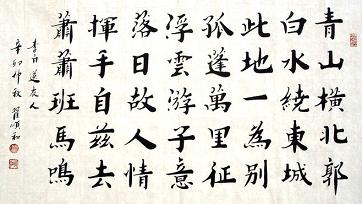 青山橫北郭
白水繞東城
此地一為別
孤蓬萬里征
浮雲游子意
落日故人情
揮手自茲去
蕭蕭班馬鳴
李白送友人
辛卯仲秋 順和